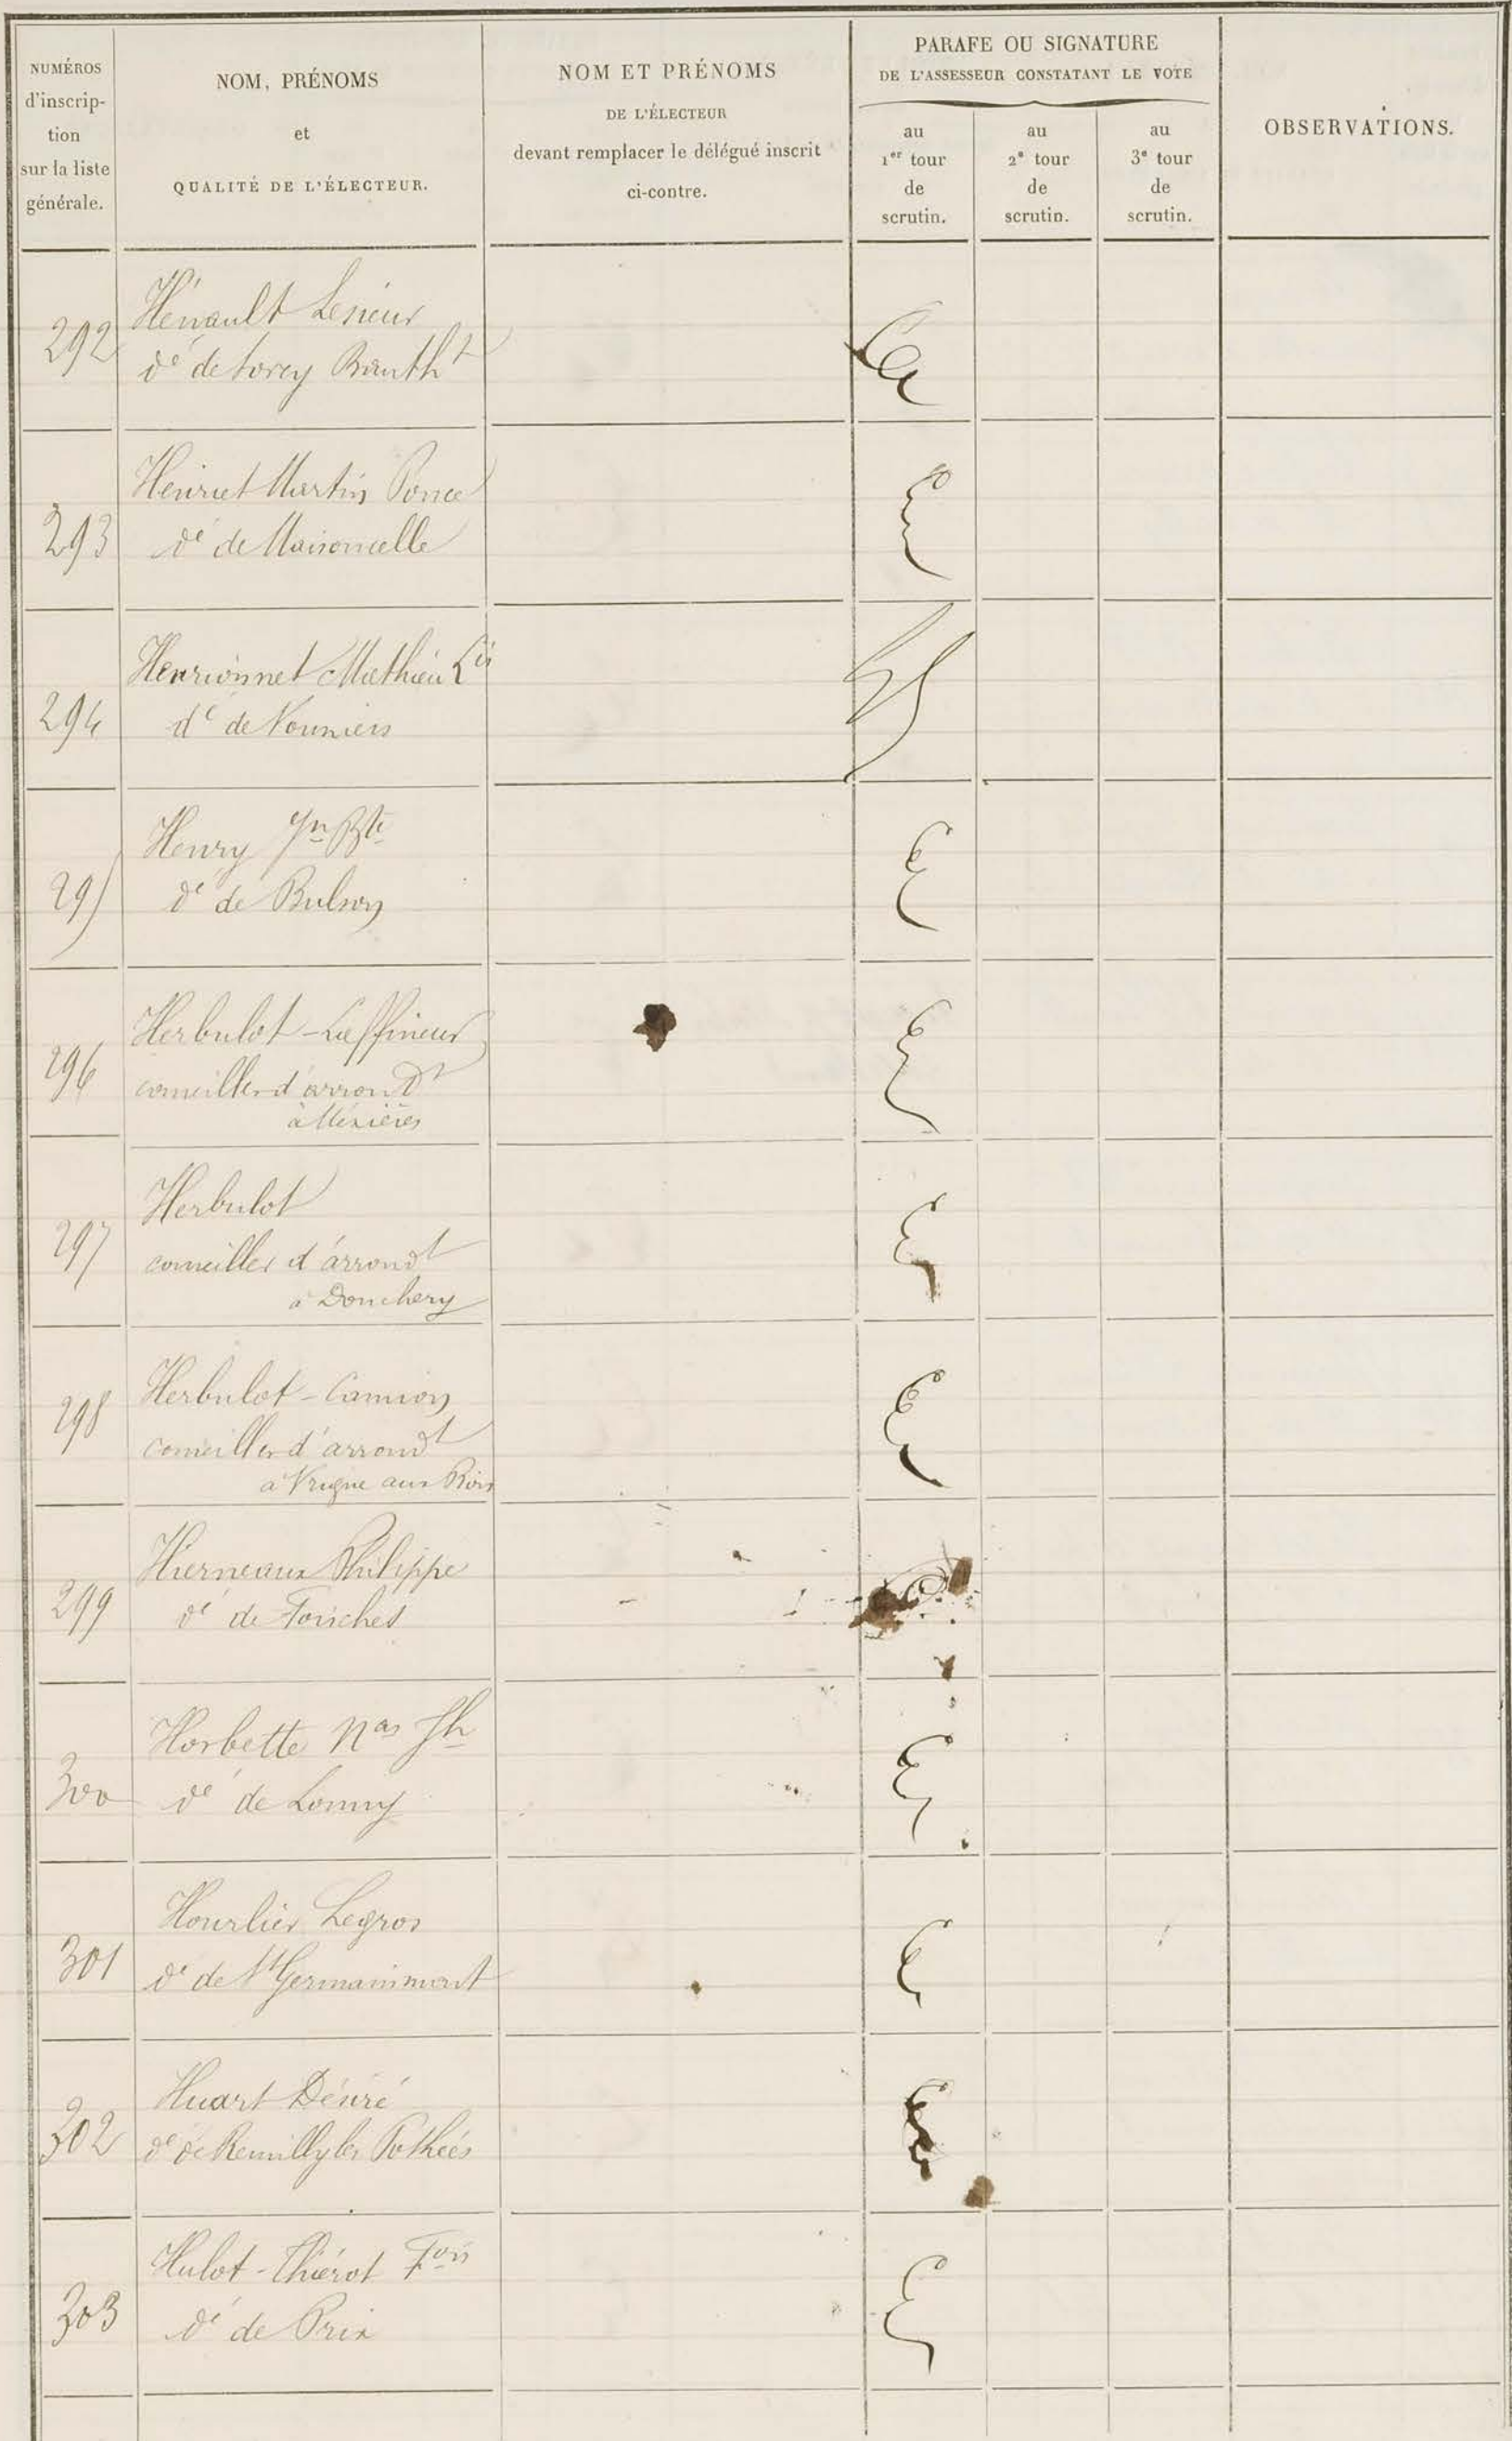 NUMÉROS
d'inscrip-
tion
sur la liste
générale.
NOM, PRÉNOMS
et
QUALITÉ DE L'ÉLECTEUR.
NOM ET PRÉNOMS
DE L'ÉLECTEUR
devant remplacer le délégué inscrit
ci-contre.
PARAFE OU SIGNATURE
DE L'ASSESSEUR CONSTATANT LE VOTE
au
1er tour
de
scrutin.
au
2e tour
de
scrutin.
au
3e tour
de
scrutin.
OBSERVATIONS.
292
Hénault Lesieur
dé de Torcy
293
Henriet Martin Ponce
dé de Maisoncelle
294
Henrionnet Mathieu Lis
dé de Vouziers
295
Henry Jn Bte
dé de Bulson
296
Herbulot-Laffineur
conseiller d'arrondt
à Mézières
297
Herbulot
conseiller d'arrondt
à Donchery
298
Herbulot-Camion
conseiller d'arrondt
à Vrigne aux Bois
299
Hierneaux Philippe
dé de
300
Horbette Nas Jh
dé de Lonny
301
Hourlier Legros
dé de St Germainmont
302
Huart Désiré
dé de Remilly les Pothées
303
Hulot-Thiérot Fois
dé de Prix